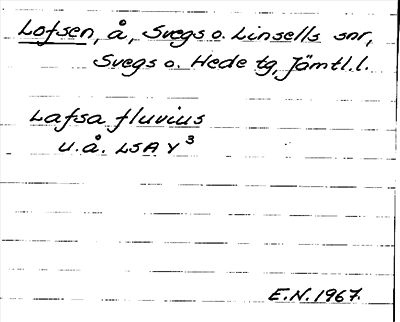 Lofsen, å, Svegs o. Linsells snr,
Svegs o. Hede tg, Jämtl.l.
Lafsa fluvius
u.å. LSA Y³
E.N. 1967.